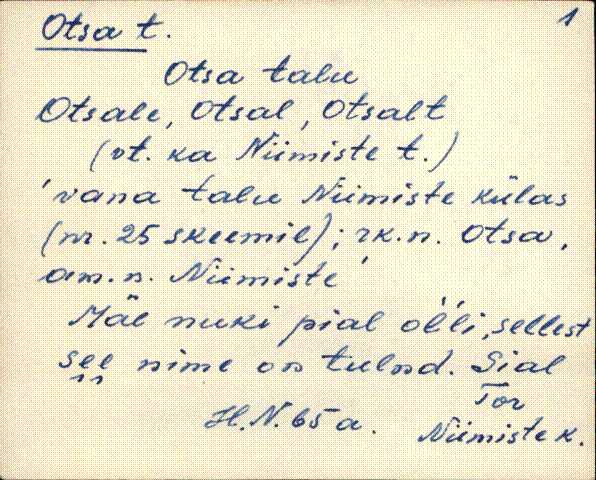 Otsa t. 1
Otsa talu
Otsale, Otsal, Otsalt
(vt. ka Niimiste t.)
'vana talu Niimiste külas
(nr. 25 skeemil); rk.n. Otsa,
am.n. Niimiste'
Mäe nuki pial ol̀l̀i, sellest
see nime on tulnd. Sial
Tor
H.N. 65 a. Niimiste k.